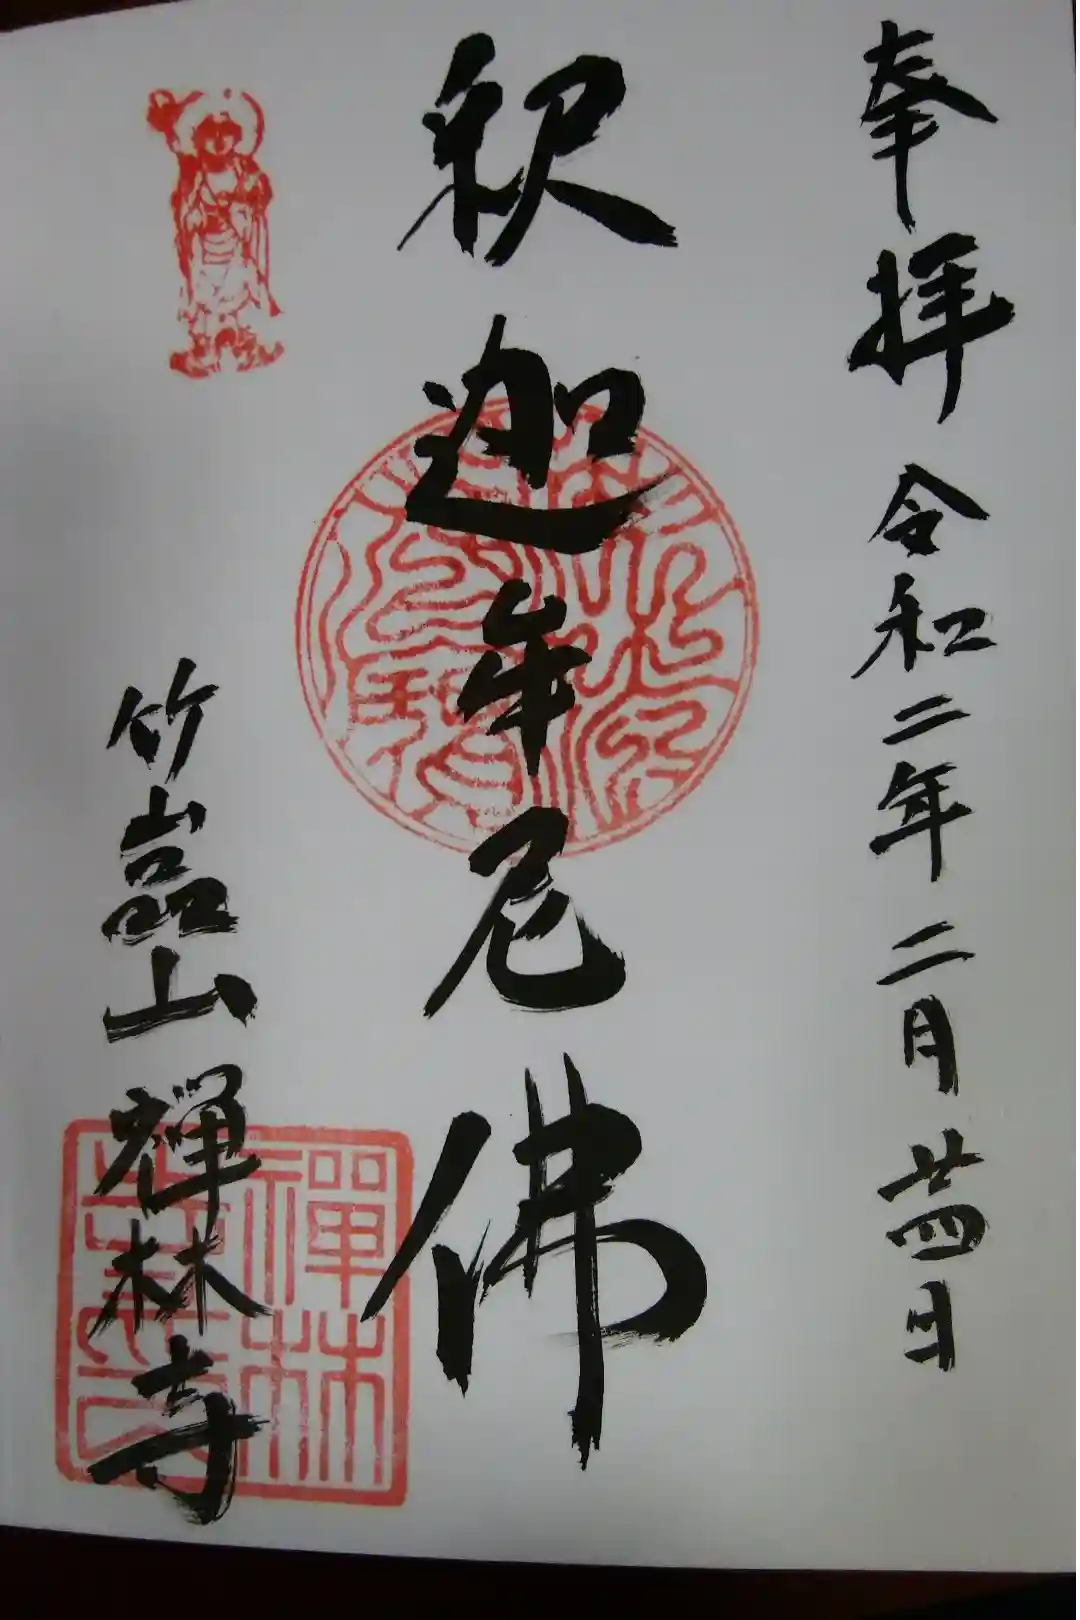 奉拝 令和二年二月廿四日
釈迦牟尼佛
竹嵓山禅林寺
禅林